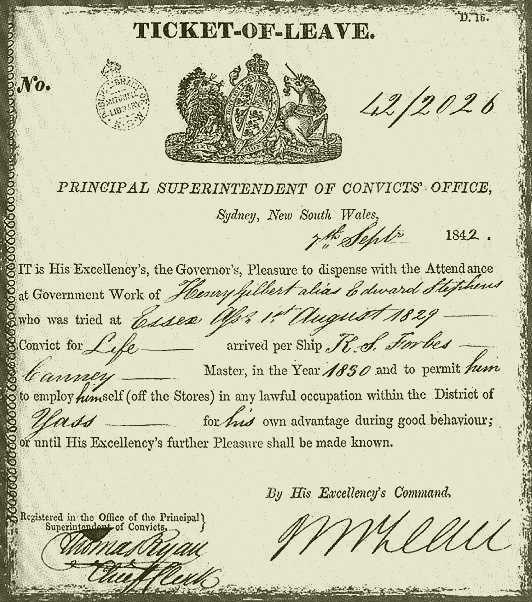 D. 16.
TICKET-OF-LEAVE.
No.
42/2026
PUBLIC LIBRARY OF N.S.W.
MITCHELL
LIBRARY
PRINCIPAL SUPERINTENDENT OF CONVICTS' OFFICE,
Sydney, New South Wales,
7th Septr 1842.
IT is His Excellency's, the Governor's, Pleasure to dispense with the Attendance
at Government Work of Henry Gilbert alias Edward Stephens
who was tried at Essex Ass 1st August 1829
Convict for Life arrived per Ship R. S. Forbes
Canney Master, in the Year 1830 and to permit him
to employ himself (off the Stores) in any lawful occupation within the District of
Yass for his own advantage during good behaviour;
or until His Excellency's further Pleasure shall be made known.
By His Excellency's Command,
Registered in the Office of the Principal
Superintendent of Convicts.
Thomas Ryan
Chief Clerk